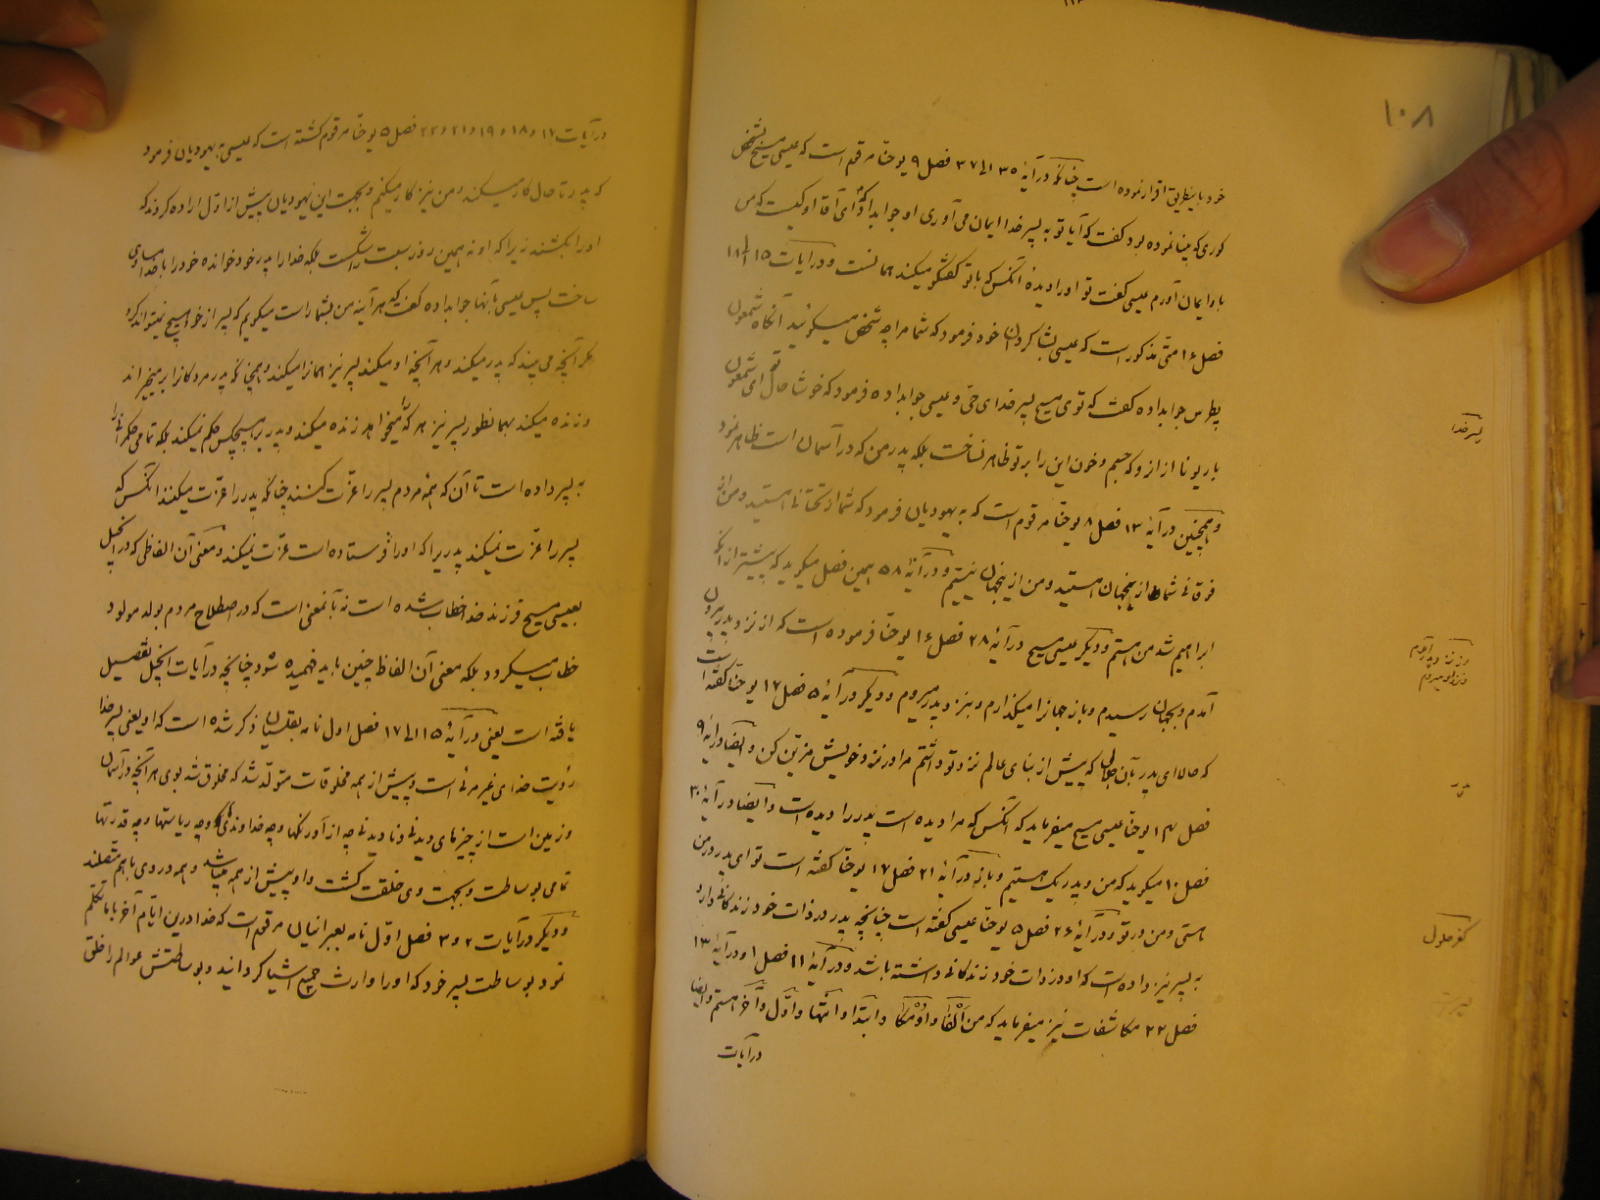 ۱۰۸
خود باینطریق اقرار نموده است چنانکه در آیهٔ ۳۵ الی ۳۷ فصل ۹ یوحنا مرقوم است که عیسی مسیح بشخص
کوری که بینا نموده بود گفت که آیا تو به پسر خدا ایمان می آوری او جواب داد که ای آقا او کیست که من
باو ایمان آورم عیسی گفت تو او را دیدهٔ آنکس که با تو گفتگو میکند همانست و در آیات ۱۵ الی ۱۸
فصل ۱۶ متی مذکور است که عیسی بشاگردان خود فرمود که شما مرا چه شخص میگوئید آنگاه شمعون
پطرس جواب داده گفت که توی مسیح پسر خدای حی و عیسی جواب داده فرمود که خوشا حال تو ای شمعون
بار یونا از آنرو که جسم و خون این را بر تو ظاهر نساخت بلکه پدر من که در آسمان است ظاهر نمود
و همچنین در آیهٔ ۲۳ فصل ۸ یوحنا مرقوم است که به یهودیان فرمود که شما از تحتانی هستید و من از
فوقانی شما از اینجهان هستید و من از اینجهان نیستم و در آیهٔ ۵۸ همین فصل میگوید که پیشتر از آنکه
ابراهیم شد من هستم و دیگر عیسی مسیح در آیهٔ ۲۸ فصل ۱۶ یوحنا فرموده است که از نزد پدر بیرون
آمدم و بجهان رسیدم و باز جهانرا میگذارم و بنزد پدر میروم و دیگر در آیهٔ ۵ فصل ۱۷ یوحنا گفته است
که حالا ای پدر بآن جلالی که پیش از بنای عالم نزد تو داشتم مرا در نزد خویش مزین کن و ایضا در آیهٔ ۹
فصل ۱۴ یوحنا عیسی مسیح میفرماید که آنکس که مرا دیده است پدر را دیده است و ایضا در آیهٔ ۳۰
فصل ۱۰ میگوید که من و پدر یک هستیم و باز در آیهٔ ۲۱ فصل ۱۷ یوحنا گفته است تو ای پدر در من
هستی و من در تو و در آیهٔ ۲۶ فصل ۵ یوحنا عیسی گفته است چنانچه پدر در ذات خود زندگانی دارد
به پسر نیز داده است که او در ذات خود زندگانی داشته باشد و در آیهٔ ۱۱ فصل ۱ و در آیهٔ ۱۳
فصل ۲۲ مکاشفات نیز میفرماید که من الفا و اومگا و ابتدا و انتها و اول و آخر هستم و ایضا
در آیات
پسر خدا
نزد پدر آمدم
و نزد او میروم
کفر حلول
در آیات ۱۷ و ۱۸ و ۱۹ و ۲۱ و ۲۲ فصل ۵ یوحنا مرقوم گشته است که عیسی به یهودیان فرمود
که پدر تا حال کار میکند و من نیز کار میکنم و بجهت این یهودیان پیش از اول اراده کردند که
او را بکشند زیرا که او نه همین روز سبت را شکست بلکه خدا را پدر خود خوانده خود را با خدا مساوی
ساخت پس عیسی بآنها جواب داده گفت که هر آینه من بشما راست میگویم که پسر از خود هیچ نمیتواند کرد
مگر آنچه می بیند که پدر میکند و هر آنچه او میکند پسر نیز همانرا میکند و همچنانکه پدر مردکانرا بر میخیزاند
و زنده میکند بهمانطور پسر نیز هر که را میخواهد زنده میکند و پدر بر هیچکس حکم نمیکند بلکه تمامی حکمرانی را
به پسر داده است تا آن که همهٔ مردم پسر را عزت کنند چنانکه پدر را عزت میکنند آنکس که
پسر را عزت نمیکند پدریرا که او را فرستاده است عزت نمیکند و معنی آن الفاظی که در انجیل
بعیسی مسیح فرزند خدا خطاب شده است نه بآنمعنی است که در اصطلاح مردم بولد مولود
خطاب میگردد بلکه معنی آن الفاظ چنین باید فهمیده شود چنانچه در آیات انجیل تفصیل
یافته است یعنی در آیهٔ ۱۵ الی ۱۷ فصل اول نامه بقلسیان ذکر شده است که او یعنی پسر خدا
رؤیت خدای غیر مرئی است و پیش از همه مخلوقات متولد شد که مخلوق شد بوی هر آنچه در آسمان
و زمین است از چیزهای دیدنی و نا دیدنی چه از آورنگها و چه خداوندیها و چه ریاستها و چه قدرتها
تمامی بوساطت و بجهت وی خلقت گشت و او پیش از همه میباشد و همه در وی با هم متصلند
و دیگر در آیات ۲ و ۳ فصل اول نامه بعبرانیان مرقوم است که خدا درین ایام آخر با ما تکلم
نمود بوساطت پسر خود که او را وارث جمیع اشیا گردانید و بوساطتش عوالم را خلق